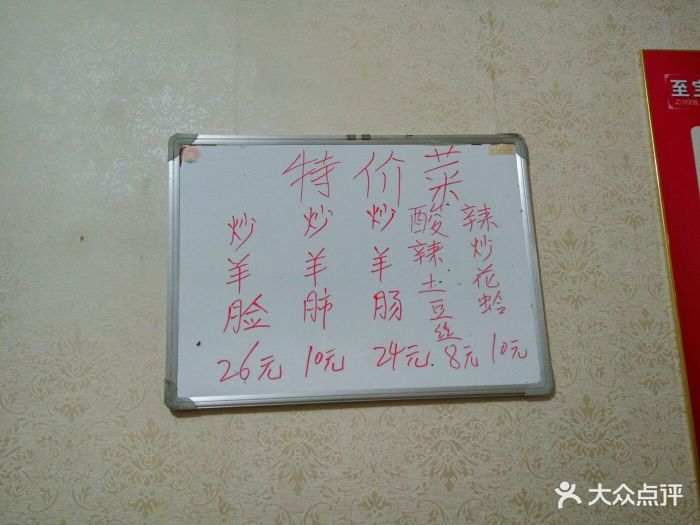 特价菜
炒羊脸
26元
炒羊肺
10元
炒羊肠
24元.
酸辣土豆丝
8元
辣炒花蛤
10元
至宝
大众点评